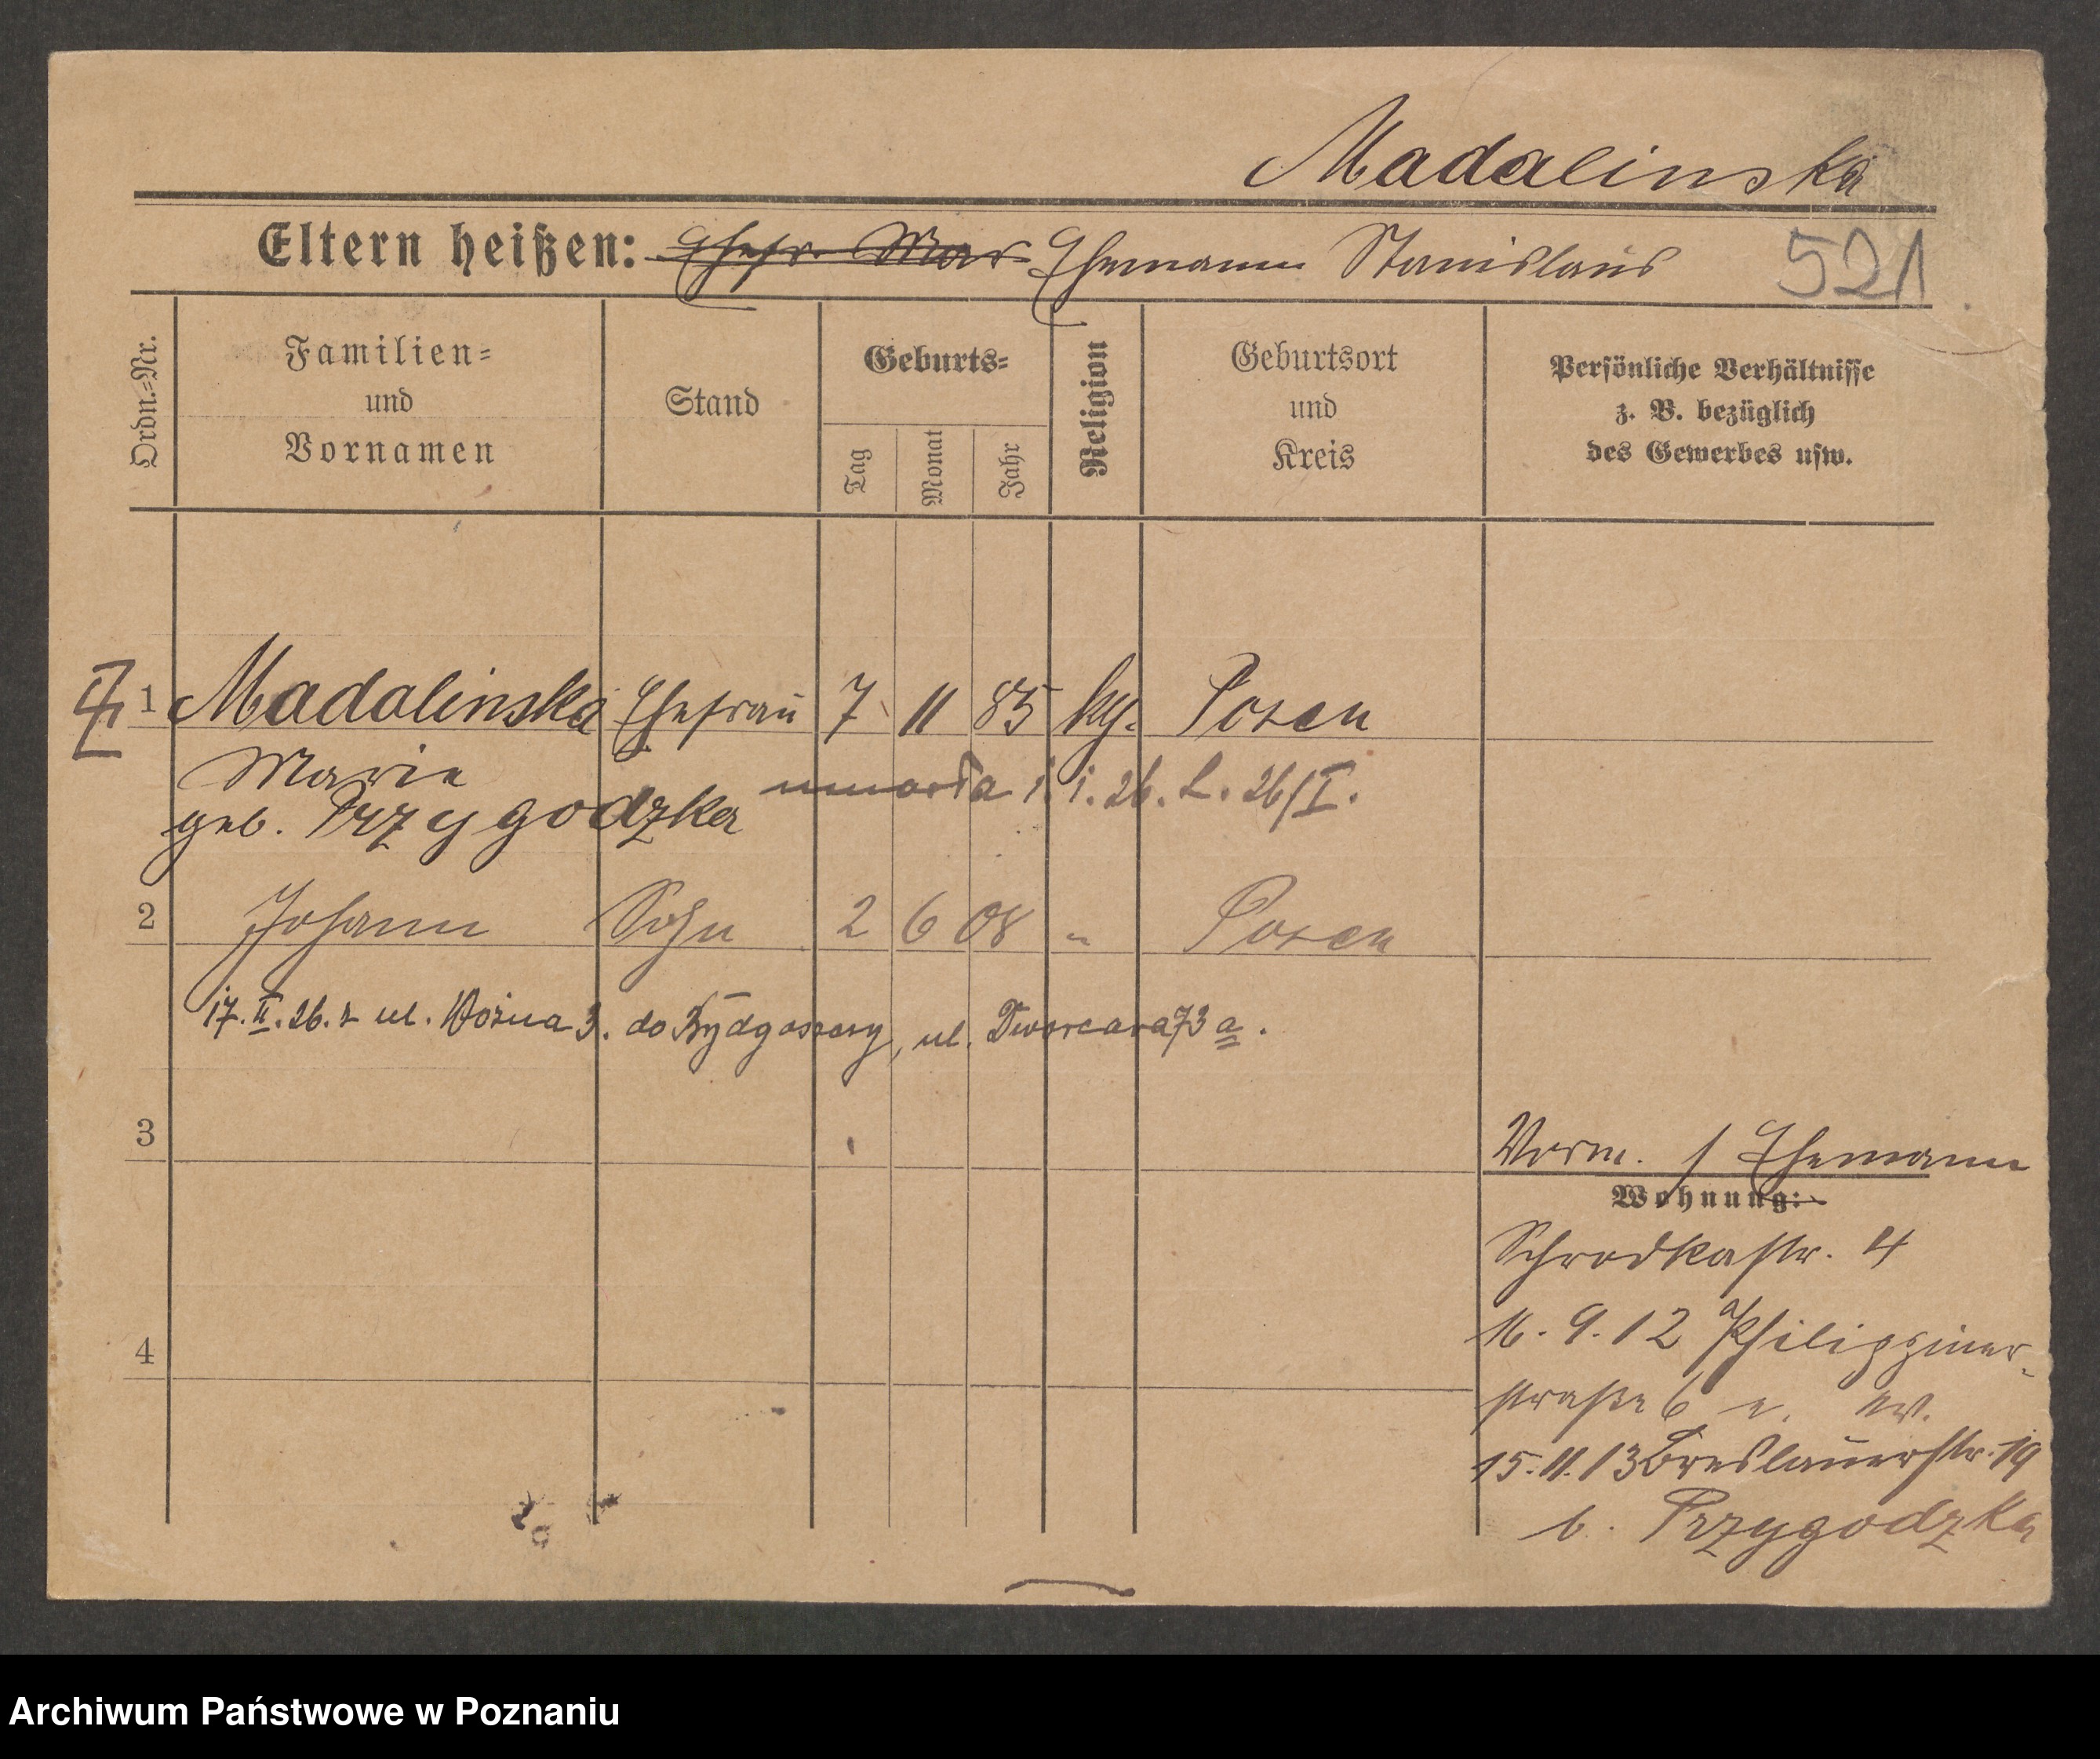 Madalinska
Eltern heißen: Ehefr. Mar Ehemann Stanislaus 521
Ordn.=Nr.
Familien=
und
Vornamen
Stand
Geburts=
Tag
Monat
Jahr
Religion
Geburtsort
und
Kreis
Persönliche Verhältnisse
z. B. bezüglich
des Gewerbes usw.
1 Madalinska Ehefrau 7 11 85 kg. Posen
Marie
geb. Przygodzka
umarła 1.1.26. L. 26/I.
2 Johann Sohn 2 6 08 " Posen
17.II.26. z ul. Woźna 3. do Bydgoszczy, ul. Dworcara 73 a.
3
Verm. / Ehemann
Wohnung:
Schrodkastr. 4
4
16.9.12 Philippiner-
straße 6
15.11.13 Breslauerstr. 19
b. Przygodzka
Archiwum Państwowe w Poznaniu